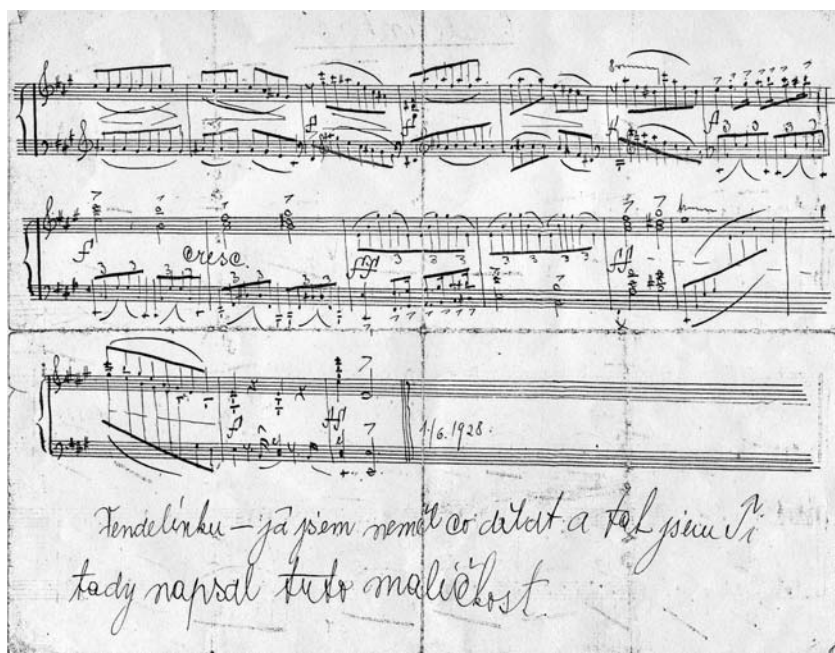 f cresc. ff ff
1/6.1928.
– já jsem neměl co dělat a tak jsem Ti
tady napsal tuto maličkost.